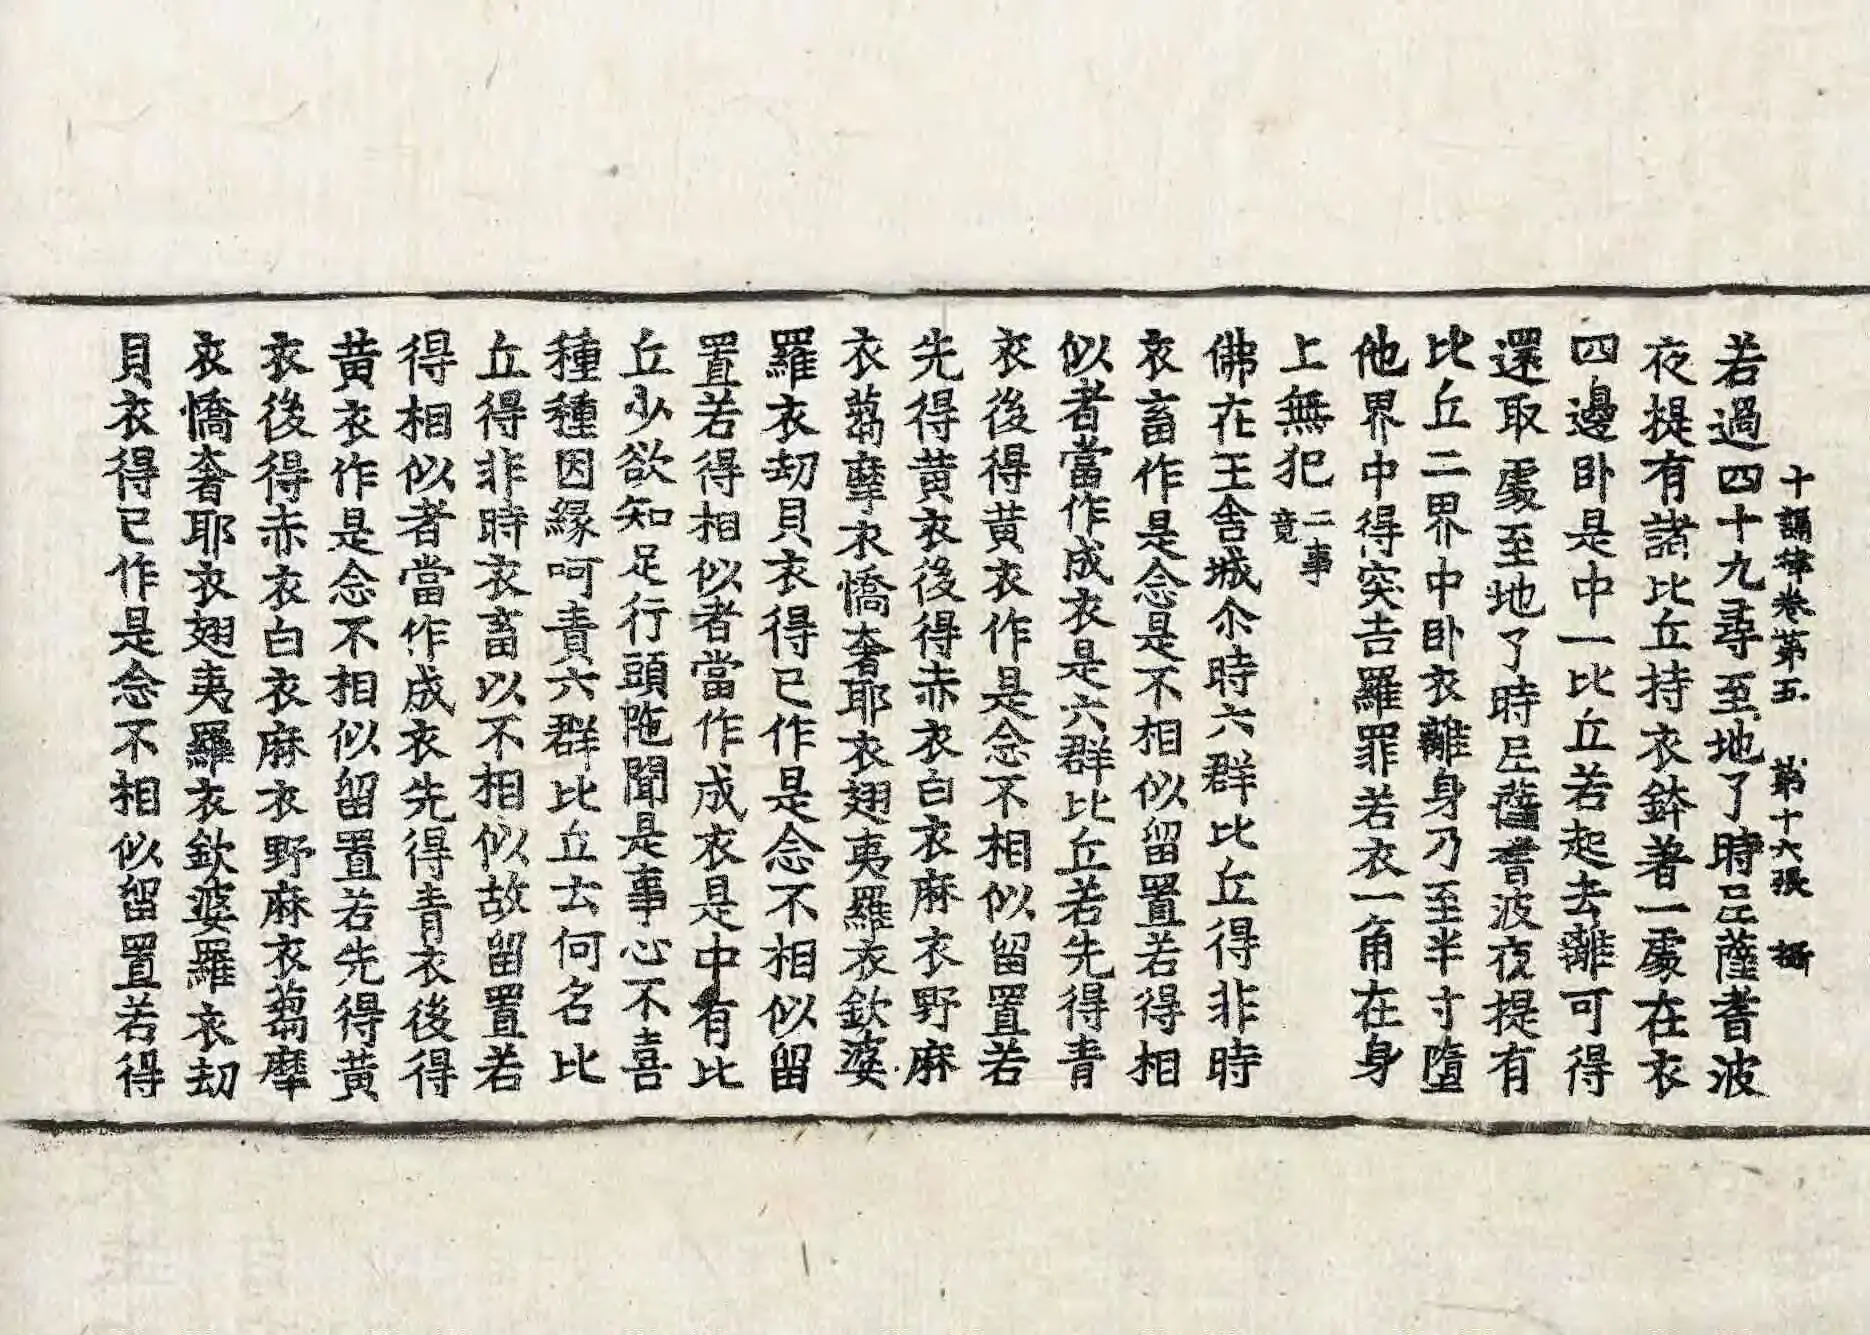 十誦律卷第五 第十六張 攝
若過四十九尋至地了時尼薩耆波
夜提有諸比丘持衣鉢著一處在衣
四邊卧是中一比丘若起去離可得
還取處至地了時尼薩耆波夜提有
比丘二界中卧衣離身乃至半寸墮
他界中得突吉羅罪若衣一角在身
上無犯二事竟
佛在王舍城尒時六群比丘得非時
衣畜作是念是不相似留置若得相
似者當作成衣是六群比丘若先得青
衣後得黃衣作是念不相似留置若
先得黃衣後得赤衣白衣麻衣野麻
衣蒭摩衣憍奢耶衣翅夷羅衣欽婆
羅衣刧貝衣得已作是念不相似留
置若得相似者當作成衣是中有比
丘少欲知足行頭陁聞是事心不喜
種種因緣呵責六群比丘去何名比
丘得非時衣畜以不相似故留置若
得相似者當作成衣先得青衣後得
黃衣作是念不相似留置若先得黃
衣後得赤衣白衣麻衣野麻衣蒭摩
衣憍奢耶衣翅夷羅衣欽婆羅衣刧
貝衣得已作是念不相似留置若得